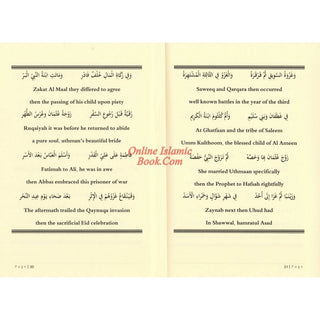 وَفِي زَكَاةِ الْمَالِ خُلْفٌ فَادْرِ وَمَاتَتِ ابْنَةُ النَّبِيِّ الْبَرِّ
Zakat Al Maal they differed to agree
then the passing of his child upon piety
رُقَيَّةٌ قَبْلَ رُجُوعِ السَّفْرِ زَوْجَةُ عُثْمَانَ وَعُرْسُ الطُّهْرِ
Ruqaiyah it was before he returned to abide
a pure soul, uthman's beautiful bride
فَاطِمَةٍ عَلَى عَلِيِّ الْقَدْرِ وَأَسْلَمَ الْعَبَّاسُ بَعْدَ الْأَسْرِ
Fatimah to Ali, he was in awe
then Abbas embraced this prisoner of war
وَقَيْنُقَاعُ غَزْوُهُمْ فِي الْإِثْرِ وَبَعْدُ ضَحَّى يَوْمَ عِيدِ النَّحْرِ
The aftermath trailed the Qaynuqa invasion
then the sacrificial Eid celebration
Page | 20
وَغَزْوَةُ السَّوِيقِ ثُمَّ قَرْقَرَهْ وَالْغَزْوُ فِي الثَّالِثَةِ الْمُشْتَهِرَهْ
Saweeq and Qarqara then occurred
well known battles in the year of the third
فِي غَطَفَانَ وَبَنِي سُلَيْمِ وَأُمُّ كُلْثُومَ ابْنَةُ الْكَرِيمِ
At Ghatfaan and the tribe of Saleem
Umm Kulthoom, the blessed child of Al Ameen
زَوَّجَ عُثْمَانَ بِهَا وَخَصَّهْ ثُمَّ تَزَوَّجَ النَّبِيُّ حَفْصَهْ
She married Uthmaan specifically
then the Prophet to Hafsah rightfully
وَزَيْنَبًا ثُمَّ غَزَا إِلَى أُحُدْ فِي شَهْرِ شَوَّالٍ وَحَمْرَاءِ الْأَسَدْ
Zaynab next then Uhud had
In Shawwal, hamraatul Asad
21 | Page
Online Islamic
Book.Com